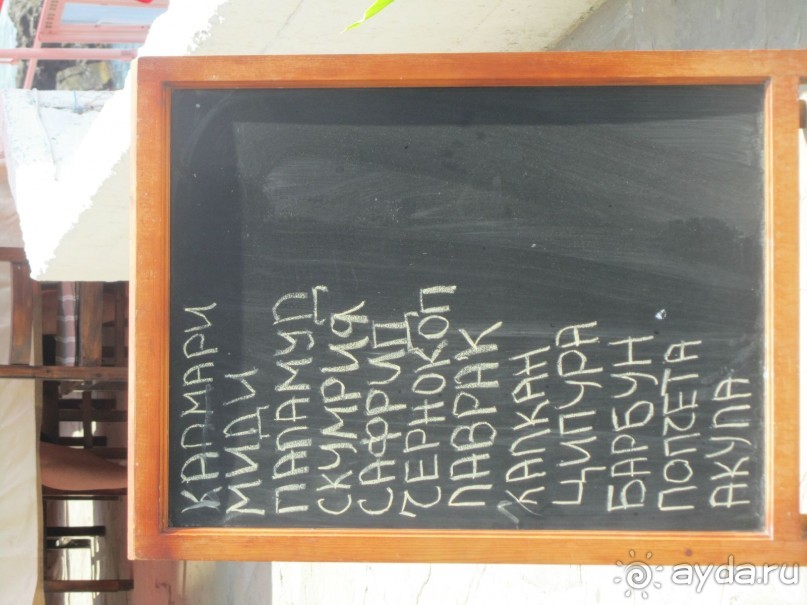 КАЛМАРИ
МИДИ
ПАЛАМУД
СКУМРИЯ
САФРИД
ЧЕРНОКОП
ЛАВРАК
КАЛКАН
ЦИПУРА
БАРБУН
ПОПЧЕТА
АКУЛА
ayda.ru